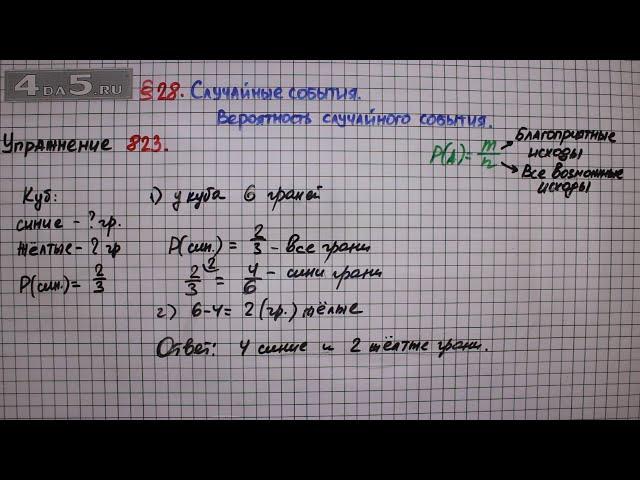 4DA5.RU
§28. Случайные события.
Вероятность случайного события.
Упражнение 823.
P(A) = m/n
Благоприятные исходы
Все возможные исходы
Куб:
синие - ? гр.
жёлтые - ? гр
P(син.) = 2/3
1) у куба 6 граней
P(син.) = 2/3 - все грани
2/3 ² = 4/6 - сини грани
2) 6-4 = 2 (гр.) жёлые
Ответ: 4 синие и 2 жёлтые грани.